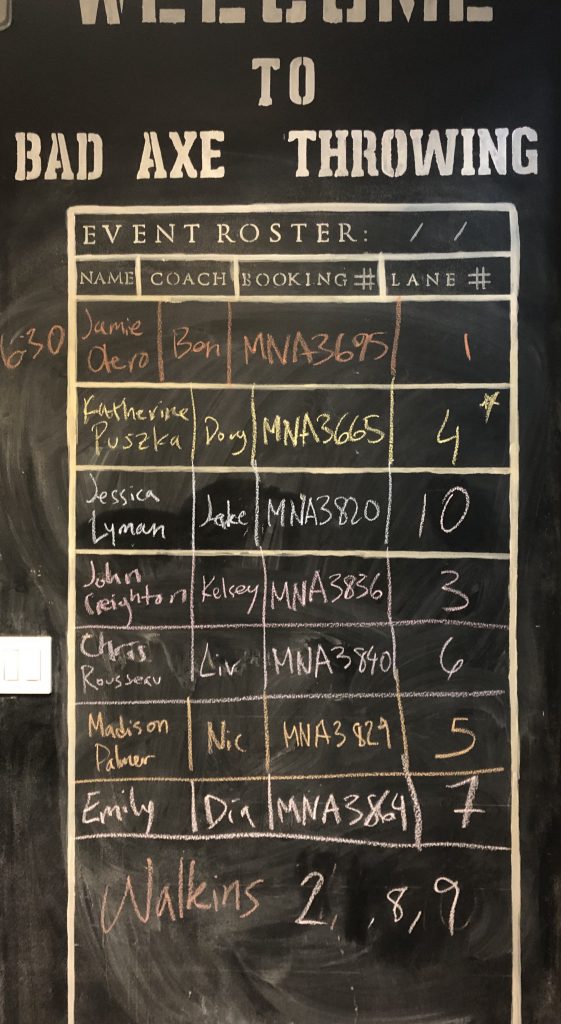 WELCOME
TO
BAD AXE THROWING
EVENT ROSTER: / /
NAME COACH BOOKING # LANE #
6:30 Jamie Otero Ben MNA3695 1
Katherine Puszka Doug MNA3665 4
Jessica Lyman Jake MNA3820 10
John Creighton Kelsey MNA3836 3
Chris Rousseau Liv MNA3840 6
Madison Palmer Nic MNA3829 5
Emily Dia MNA3864 7
Walkins 2, , 8, 9